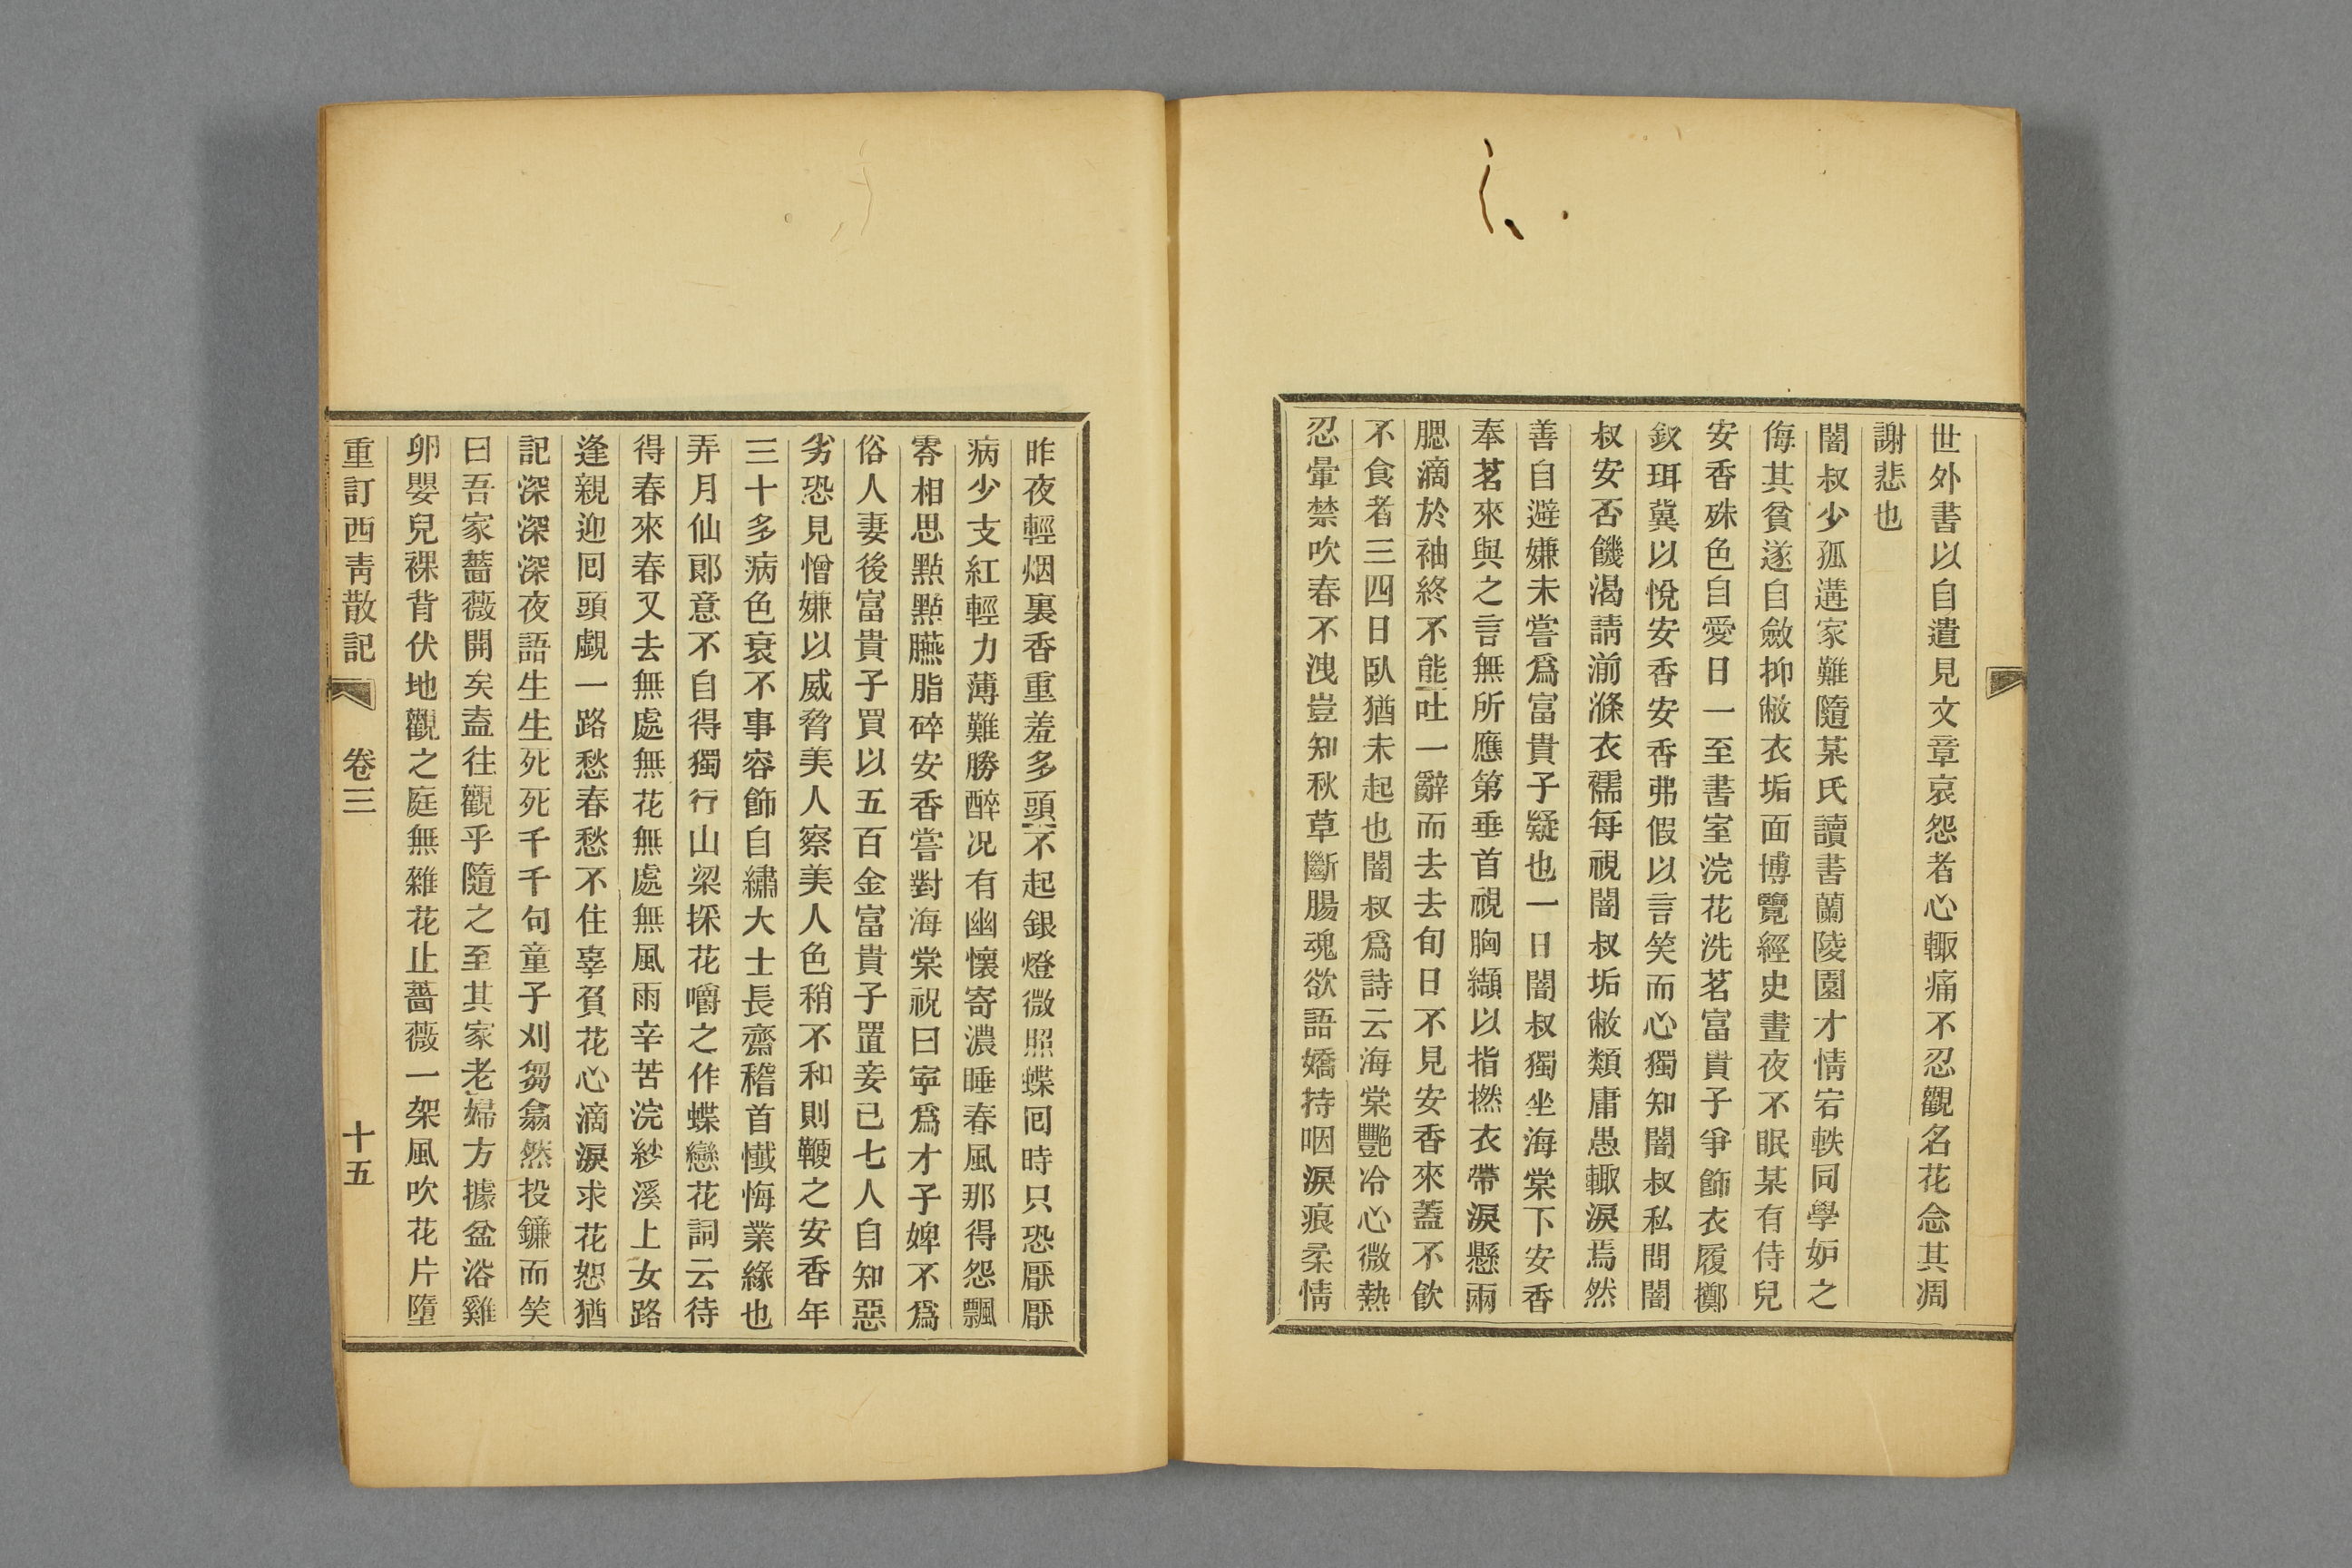 世外書以自遣見文章哀怨者心輙痛不忍觀名花念其凋
謝悲也
闇叔少孤遘家難隨某氏讀書蘭陵園才情宕軼同學妒之
侮其貧遂自斂抑敝衣垢面博覽經史晝夜不眠某有侍兒
安香姝色自愛日一至書室浣花洗茗富貴子爭飾衣履擲
釵珥冀以悅安香安香弗假以言笑而心獨知闇叔私問闇
叔安否饑渴請湔滌衣襦每視闇叔垢敝類庸愚輙淚焉然
善自避嫌未嘗爲富貴子疑也一日闇叔獨坐海棠下安香
奉茗來與之言無所應第垂首視胸纈以指撚衣帶淚懸兩
腮滴於袖終不能吐一辭而去去旬日不見安香來蓋不飲
不食者三四日臥猶未起也闇叔爲詩云海棠艷冷心微熱
忍暈禁吹春不洩豈知秋草斷腸魂欲語嬌持咽淚痕柔情
昨夜輕烟裏香重羞多頭不起銀燈微照蝶囘時只恐厭厭
病少支紅輕力薄難勝醉况有幽懷寄濃睡春風那得怨飄
零相思點點臙脂碎安香嘗對海棠祝曰寧爲才子婢不爲
俗人妻後富貴子買以五百金富貴子置妾已七人自知惡
劣恐見憎嫌以威脅美人察美人色稍不和則鞭之安香年
三十多病色衰不事容飾自繡大士長齋稽首懴悔業緣也
弄月仙郞意不自得獨行山梁採花嚼之作蝶戀花詞云待
得春來春又去無處無花無處無風雨辛苦浣紗溪上女路
逢親迎囘頭覷一路愁春愁不住辜負花心滴淚求花恕猶
記深深深夜語生生死死千千句童子刈芻翕然投鐮而笑
曰吾家薔薇開矣盍往觀乎隨之至其家老婦方據盆浴雞
卵嬰兒裸背伏地觀之庭無雜花止薔薇一架風吹花片墮
重訂西靑散記 卷三 十五